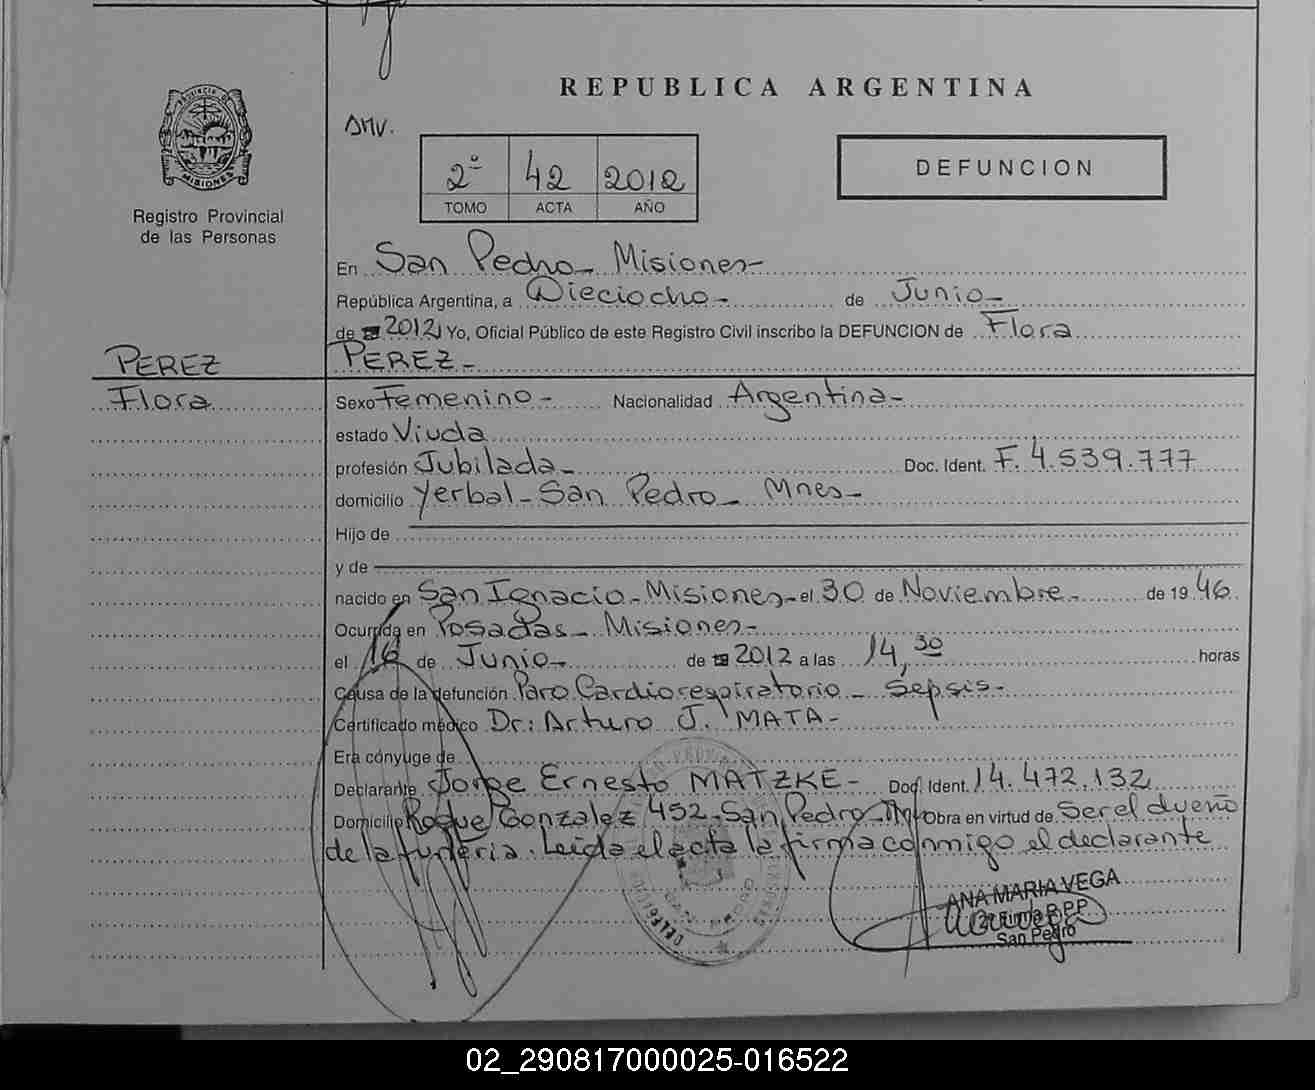 REPUBLICA ARGENTINA
PROVINCIA DE
MISIONES
Registro Provincial
de las Personas
SMV.
2º 42 2012
TOMO ACTA AÑO
DEFUNCION
En San Pedro - Misiones -
República Argentina, a Dieciocho - de Junio -
de 2012 Yo, Oficial Público de este Registro Civil inscribo la DEFUNCION de Flora
PEREZ -
PEREZ
Flora
Sexo Femenino - Nacionalidad Argentina -
estado Viuda
profesión Jubilada - Doc. Ident. F. 4.539.777
domicilio Yerbal - San Pedro - Mnes -
Hijo de
y de
nacido en San Ignacio - Misiones - el 30 de Noviembre - de 1946
Ocurrida en Posadas - Misiones -
el 16 de Junio - de 2012 a las 14,30 horas
Causa de la defunción Paro Cardiorespiratorio - Sepsis -
Certificado médico Dr: Arturo J. MATA -
Era cónyuge de
Declarante Jorge Ernesto MATZKE - Doc. Ident. 14.472.132
Domicilio Roque Gonzalez 452 - San Pedro - Obra en virtud de Ser el dueño
de la funeria. Leida el acta la firma conmigo el declarante
SAN PEDRO
ANA MARIA VEGA
2ª Firma R.P.P
San Pedro
02_290817000025-016522